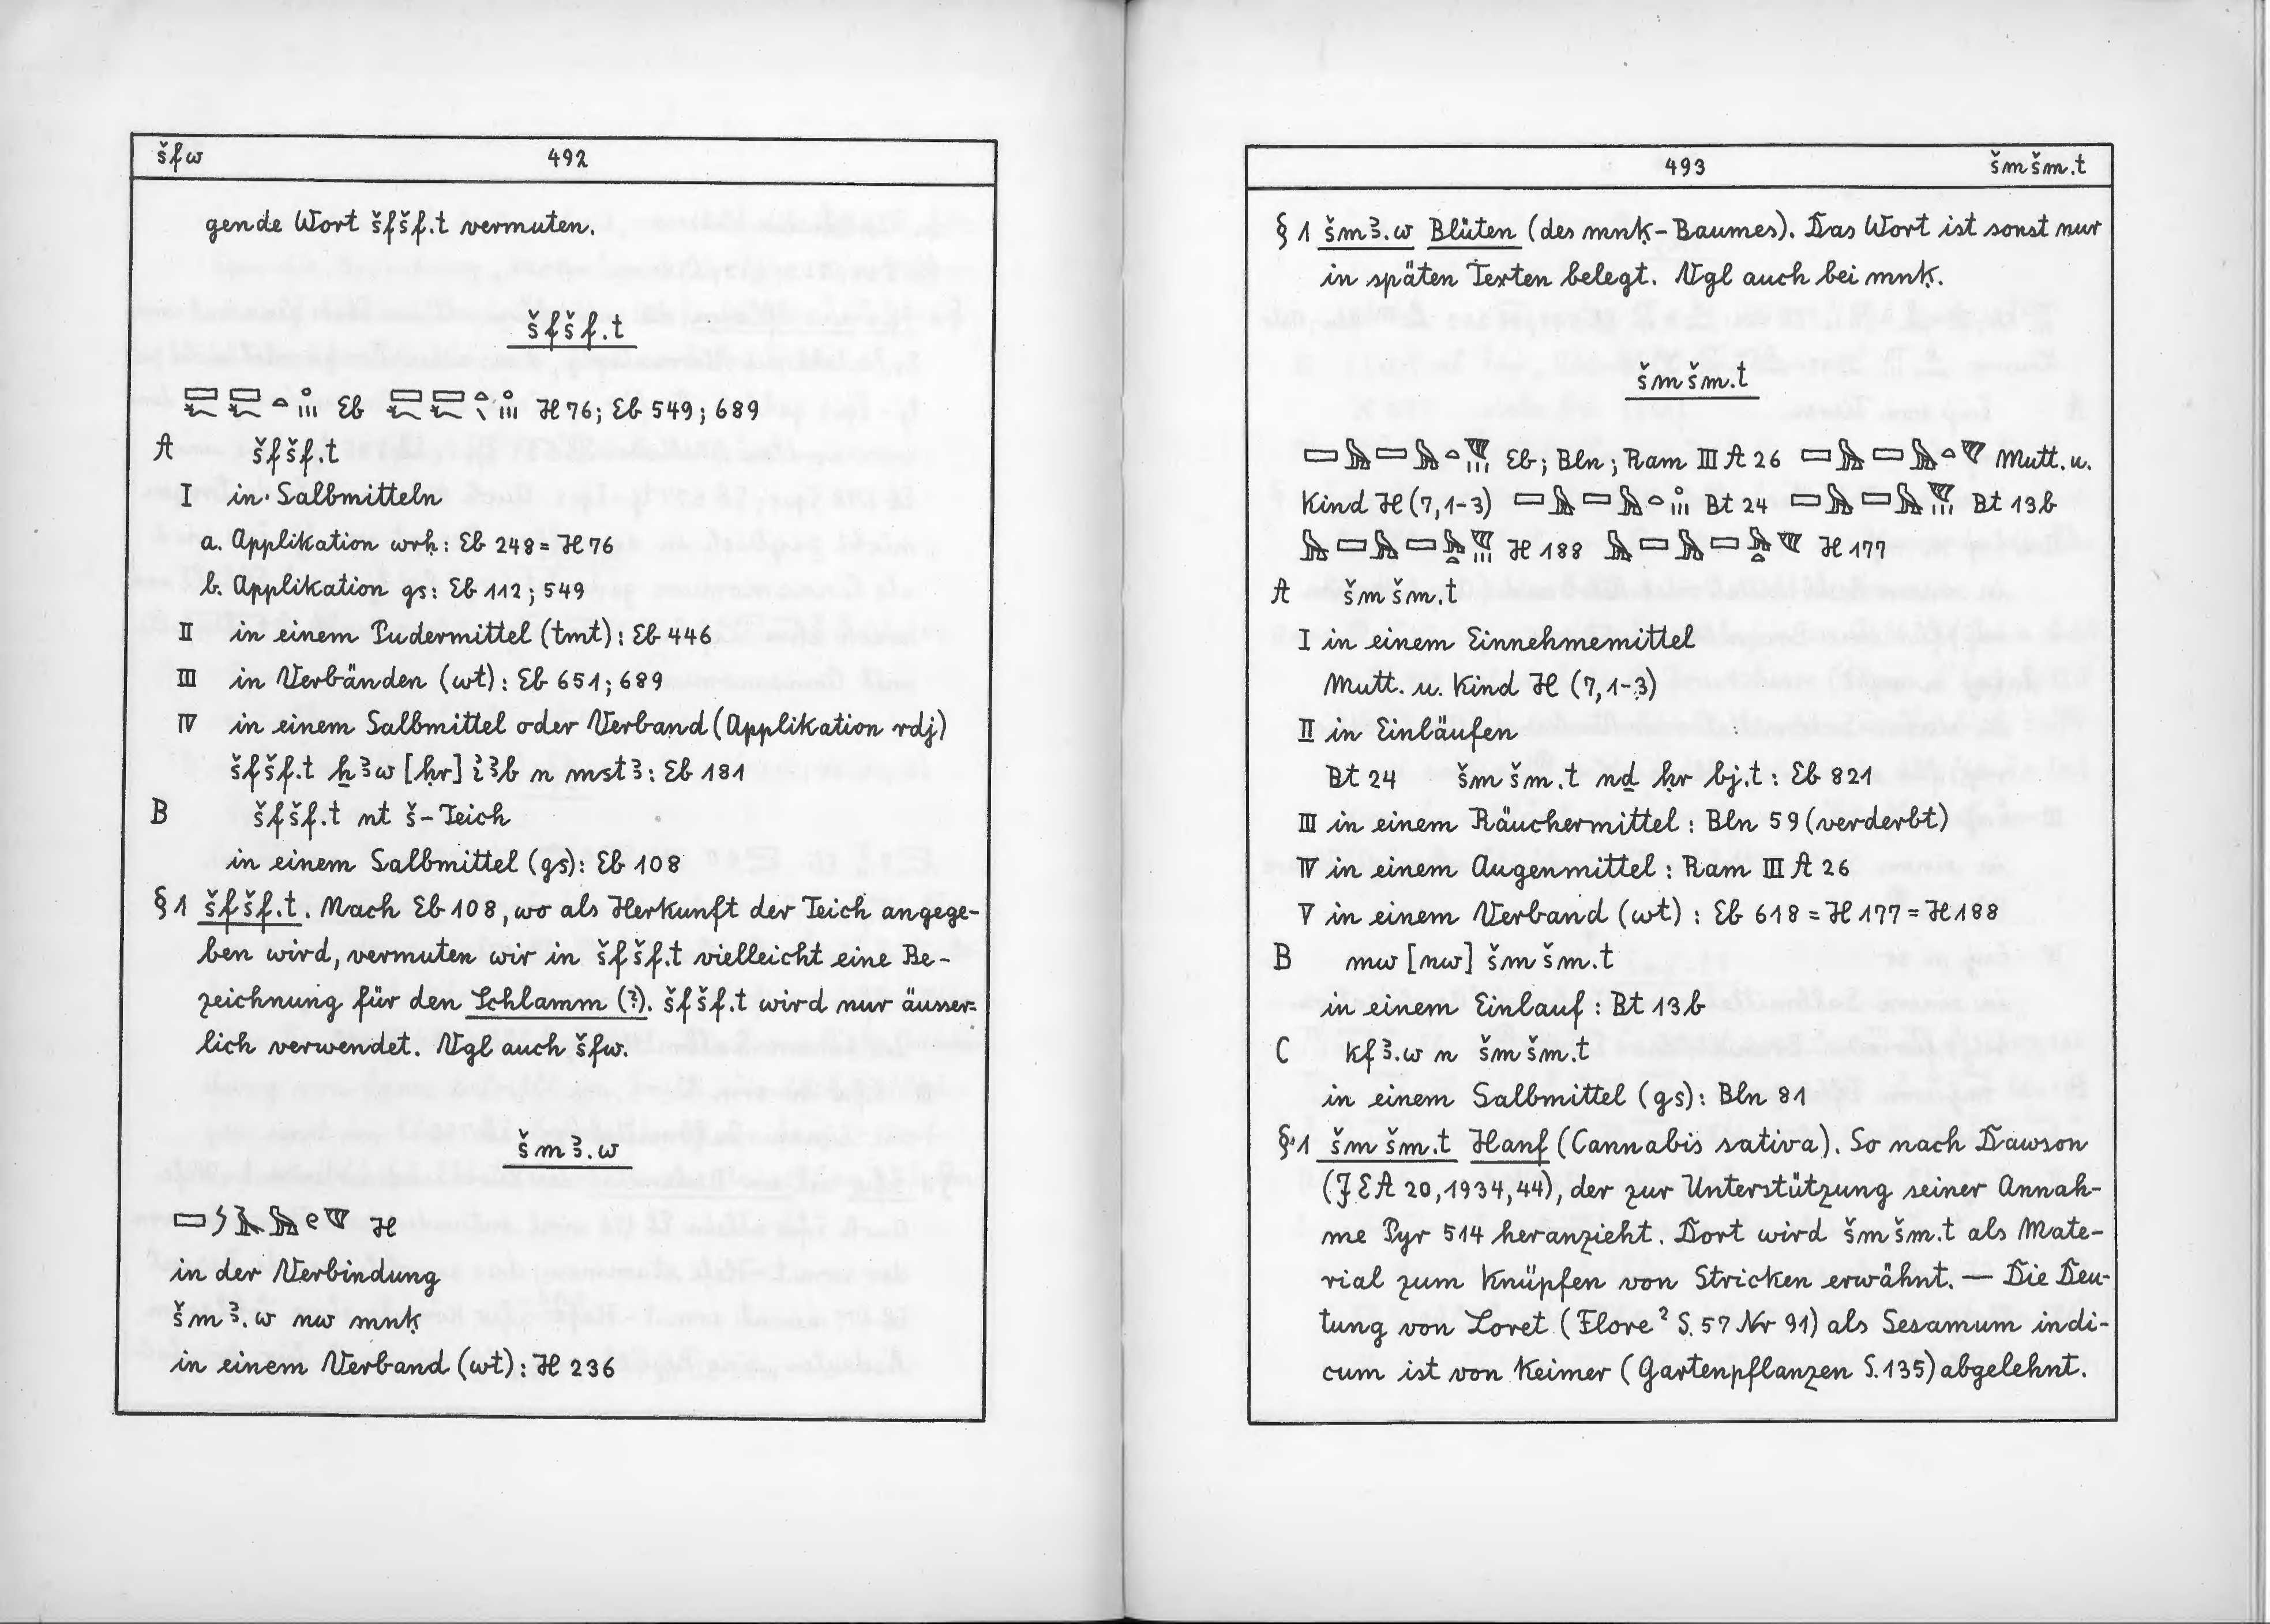 šfw 492
gende Wort šfšf.t vermuten.
šfšf.t
Eb H 76; Eb 549; 689
A šfšf.t
I in Salbmitteln
a. Applikation wrḥ: Eb 248 = H 76
b. Applikation gs: Eb 112; 549
II in einem Pudermittel (tmt): Eb 446
III in Verbänden (wt): Eb 651; 689
IV in einem Salbmittel oder Verband (Applikation rdj)
šfšf.t ẖꜣw [ḥr] iꜣb n mstꜣ: Eb 181
B šfšf.t nt š-Teich
in einem Salbmittel (gs): Eb 108
§ 1 šfšf.t. Nach Eb 108, wo als Herkunft der Teich angege-
ben wird, vermuten wir in šfšf.t vielleicht eine Be-
zeichnung für den Schlamm (?). šfšf.t wird nur äusser=
lich verwendet. Vgl auch šfw.
šmꜣ.w
H
in der Verbindung
šmꜣ.w nw mnḳ
in einem Verband (wt): H 236
493 šmšm.t
§ 1 šmꜣ.w Blüten (des mnḳ-Baumes). Das Wort ist sonst nur
in späten Texten belegt. Vgl auch bei mnḳ.
šmšm.t
Eb; Bln; Ram III A 26 Mutt. u.
Kind H (7,1-3) Bt 24 Bt 13b
H 188 H 177
A šmšm.t
I in einem Einnehmemittel
Mutt. u. Kind H (7,1-3)
II in Einläufen
Bt 24 šmšm.t nḏ ḥr bj.t: Eb 821
III in einem Räuchermittel: Bln 59 (verderbt)
IV in einem Augenmittel: Ram III A 26
V in einem Verband (wt): Eb 618 = H 177 = H 188
B mw [nw] šmšm.t
in einem Einlauf: Bt 13b
C kfꜣ.w n šmšm.t
in einem Salbmittel (gs): Bln 81
§ 1 šmšm.t Hanf (Cannabis sativa). So nach Dawson
(JEA 20, 1934, 44), der zur Unterstützung seiner Annah-
me Pyr 514 heranzieht. Dort wird šmšm.t als Mate-
rial zum Knüpfen von Stricken erwähnt. — Die Deu-
tung von Loret (Flore² S. 57 Nr 91) als Sesamum indi-
cum ist von Keimer (Gartenpflanzen S. 135) abgelehnt.